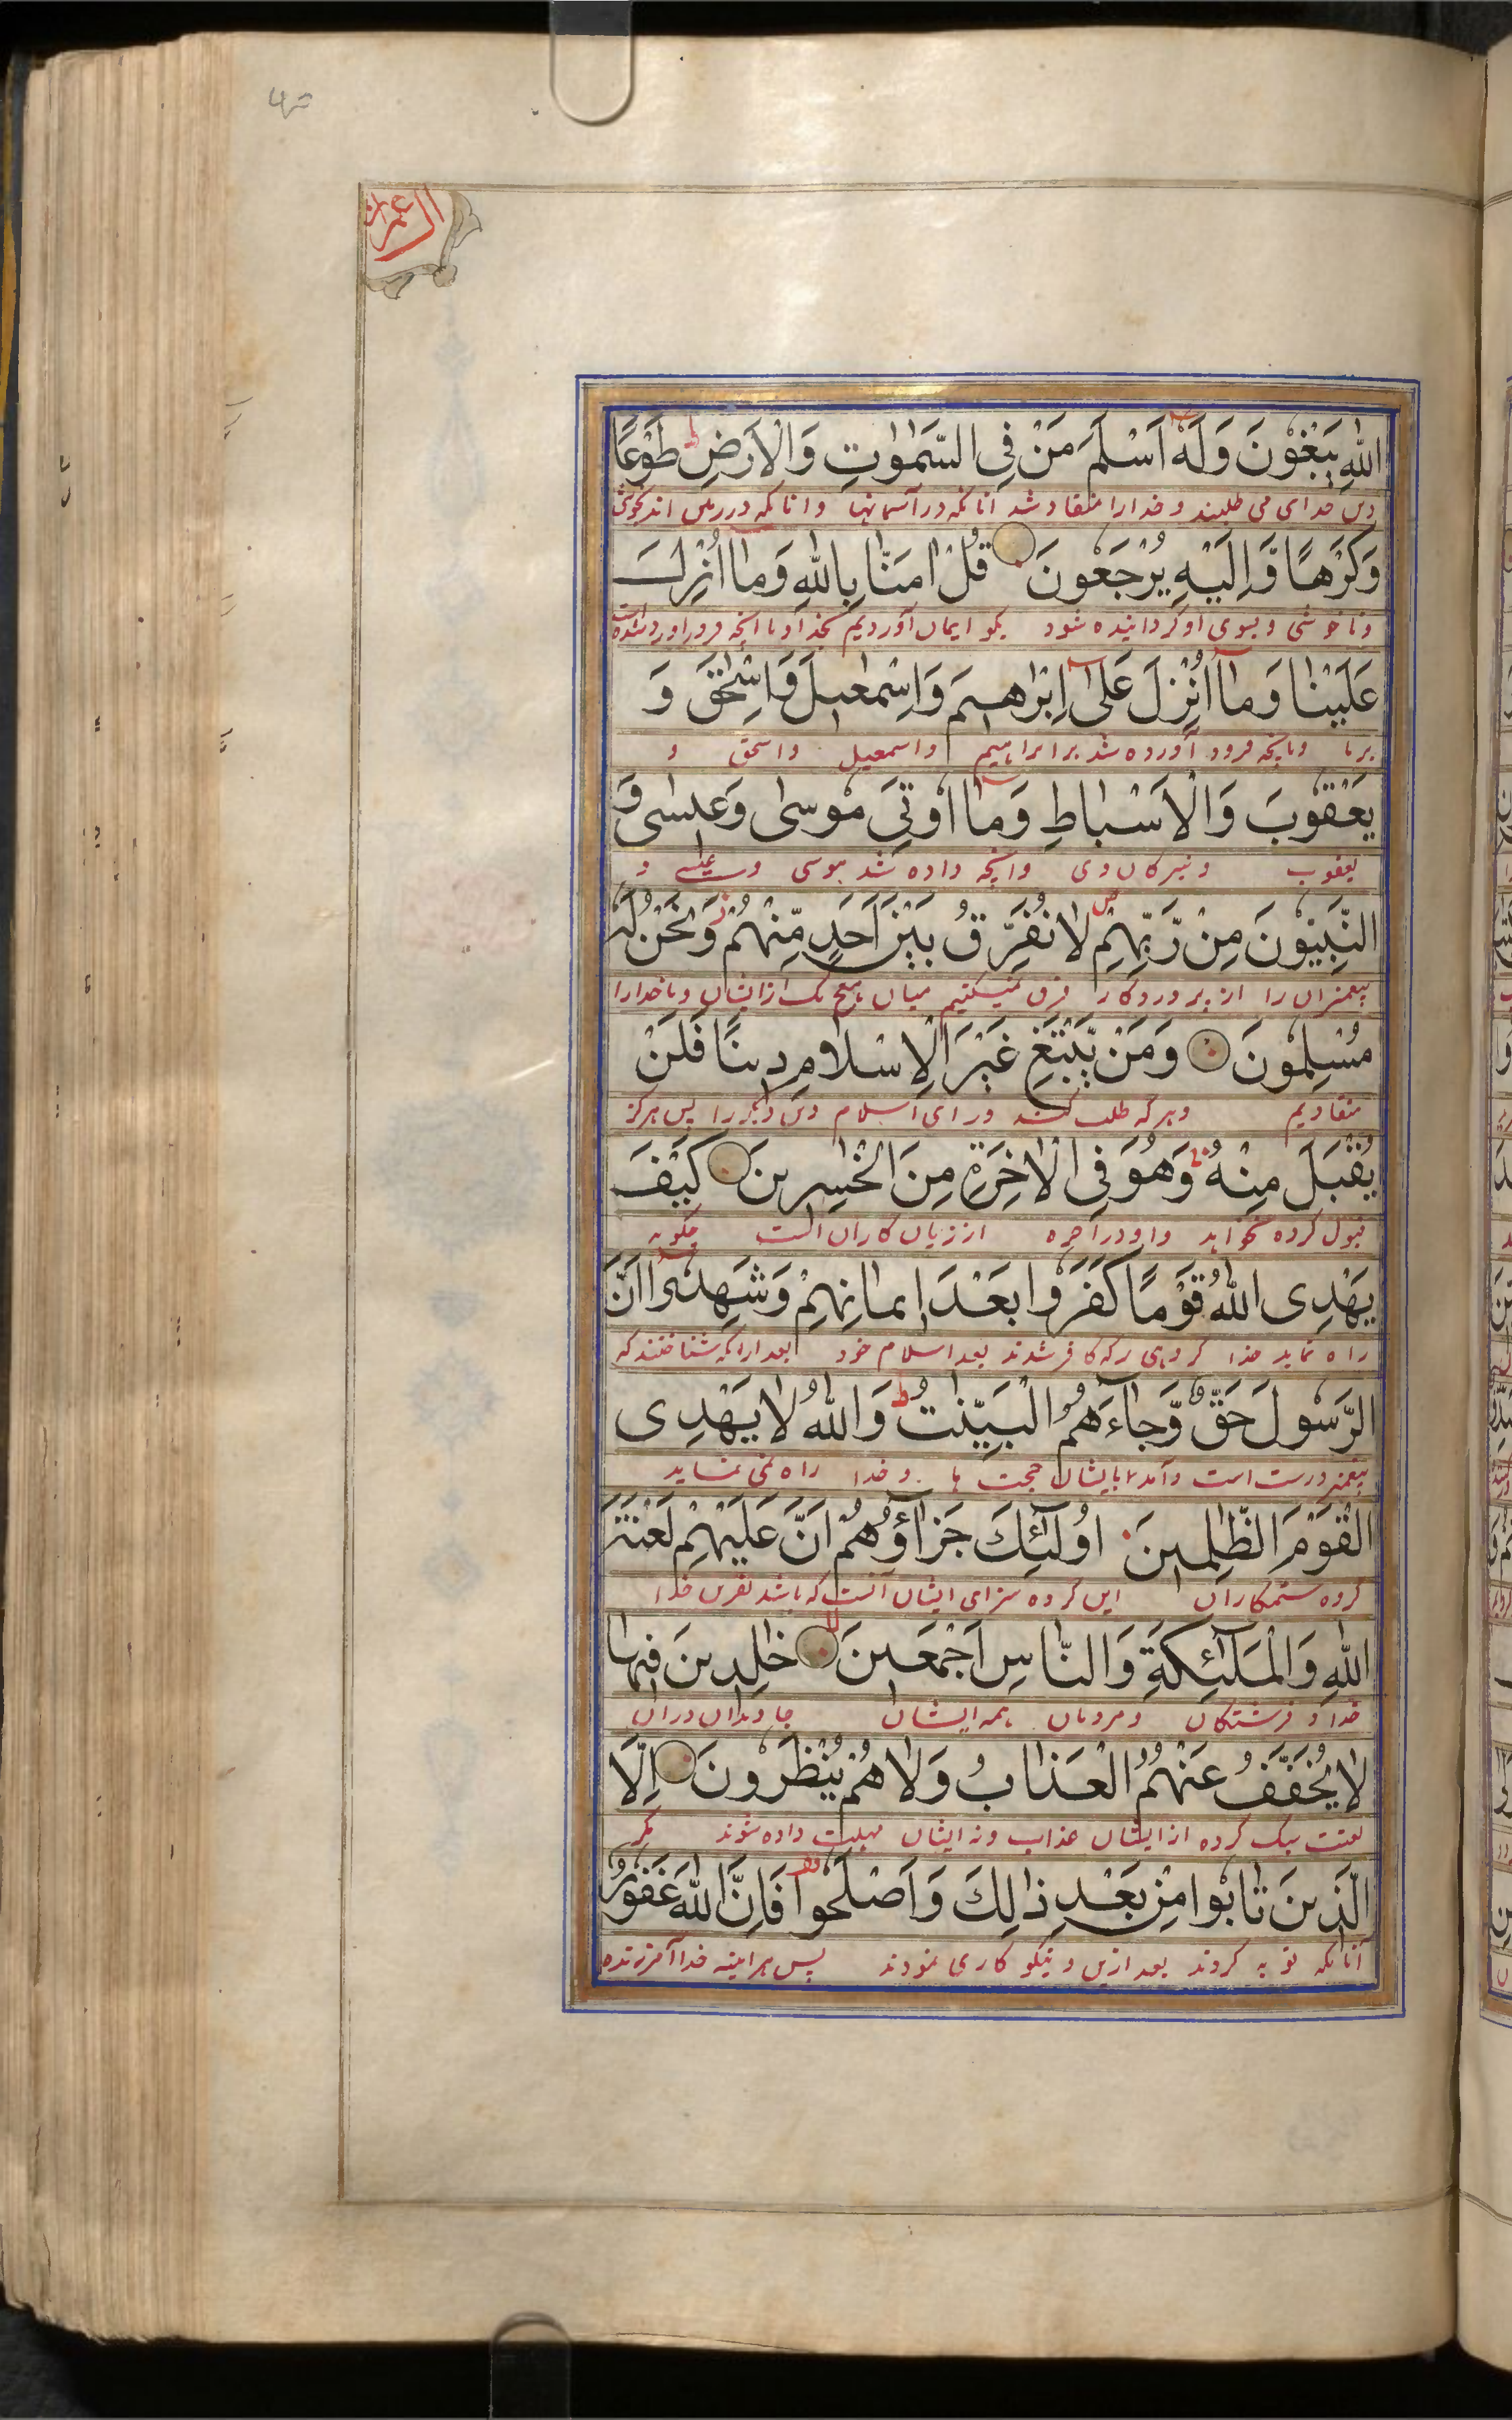 ال عمران
اللّٰهِ يَبْغُوْنَ وَلَهٗ اَسْلَمَ مَنْ فِى السَّمٰوٰتِ وَالْاَرْضِ طَوْعًا
دین خدای می طلبند و خدارا منقاد شد آنانکه در آسمانها وانانکه در زمین اند بخوشی
وَكَرْهًا وَّاِلَيْهِ يُرْجَعُوْنَ قُلْ اٰمَنَّا بِاللّٰهِ وَمَا اُنْزِلَ
وناخوشی وبسوی او گردانیده شود بگو ایمان آوردیم بخدا وباانچه فرود اورده شده است
عَلَيْنَا وَمَا اُنْزِلَ عَلٰى اِبْرٰهِيْمَ وَاِسْمٰعِيْلَ وَاِسْحٰقَ وَ
برما وبانچه فرود آورده شد بر ابراهیم واسمعیل واسحق و
يَعْقُوْبَ وَالْاَسْبَاطِ وَمَا اُوْتِىَ مُوْسٰى وَعِيْسٰى وَ
یعقوب ونبیرکان وی وانچه داده شد بموسی وعیسی و
النَّبِيُّوْنَ مِنْ رَّبِّهِمْ لَا نُفَرِّقُ بَيْنَ اَحَدٍ مِّنْهُمْ وَنَحْنُ لَهٗ
پیغمبران را از پروردکار فرق نمیکنیم میان هیچ یک از ایشان وما خدارا
مُسْلِمُوْنَ وَمَنْ يَّبْتَغِ غَيْرَ الْاِسْلَامِ دِيْنًا فَلَنْ
منقادیم وهرکه طلب کند ورای اسلام دین دیگر را پس هرگز
يُقْبَلَ مِنْهُ وَهُوَ فِى الْاٰخِرَةِ مِنَ الْخٰسِرِيْنَ كَيْفَ
قبول کرده نخواهد واو در آخره از زیان کاران است چگونه
يَهْدِى اللّٰهُ قَوْمًا كَفَرُوْا بَعْدَ اِيْمَانِهِمْ وَشَهِدُوْا اَنَّ
راه نماید خدا گروهی را که کافر شدند بعد اسلام خود بعد ازانکه شناختند که
الرَّسُوْلَ حَقٌّ وَّجَاءَهُمُ الْبَيِّنٰتُ وَاللّٰهُ لَا يَهْدِى
پیغمبر درست است وآمد بایشان حجت ها وخدا راه نمی نماید
الْقَوْمَ الظّٰلِمِيْنَ اُولٰئِكَ جَزَاؤُهُمْ اَنَّ عَلَيْهِمْ لَعْنَةَ
گروه ستمکاران این گروه سزای ایشان آنست که باشد نفرین خدا
اللّٰهِ وَالْمَلٰئِكَةِ وَالنَّاسِ اَجْمَعِيْنَ خٰلِدِيْنَ فِيْهَا
خدا و فرشتکان ومردمان همه ایشان جاویدان دران
لَا يُخَفَّفُ عَنْهُمُ الْعَذَابُ وَلَا هُمْ يُنْظَرُوْنَ اِلَّا
لعنت سبک کرده از ایشان عذاب ونه ایشان مهلت داده شوند مگر
الَّذِيْنَ تَابُوْا مِنْ بَعْدِ ذٰلِكَ وَاَصْلَحُوْا فَاِنَّ اللّٰهَ غَفُوْرٌ
آنانکه توبه کردند بعد ازین ونیکو کاری نمودند پس هراینه خدا آمرزنده